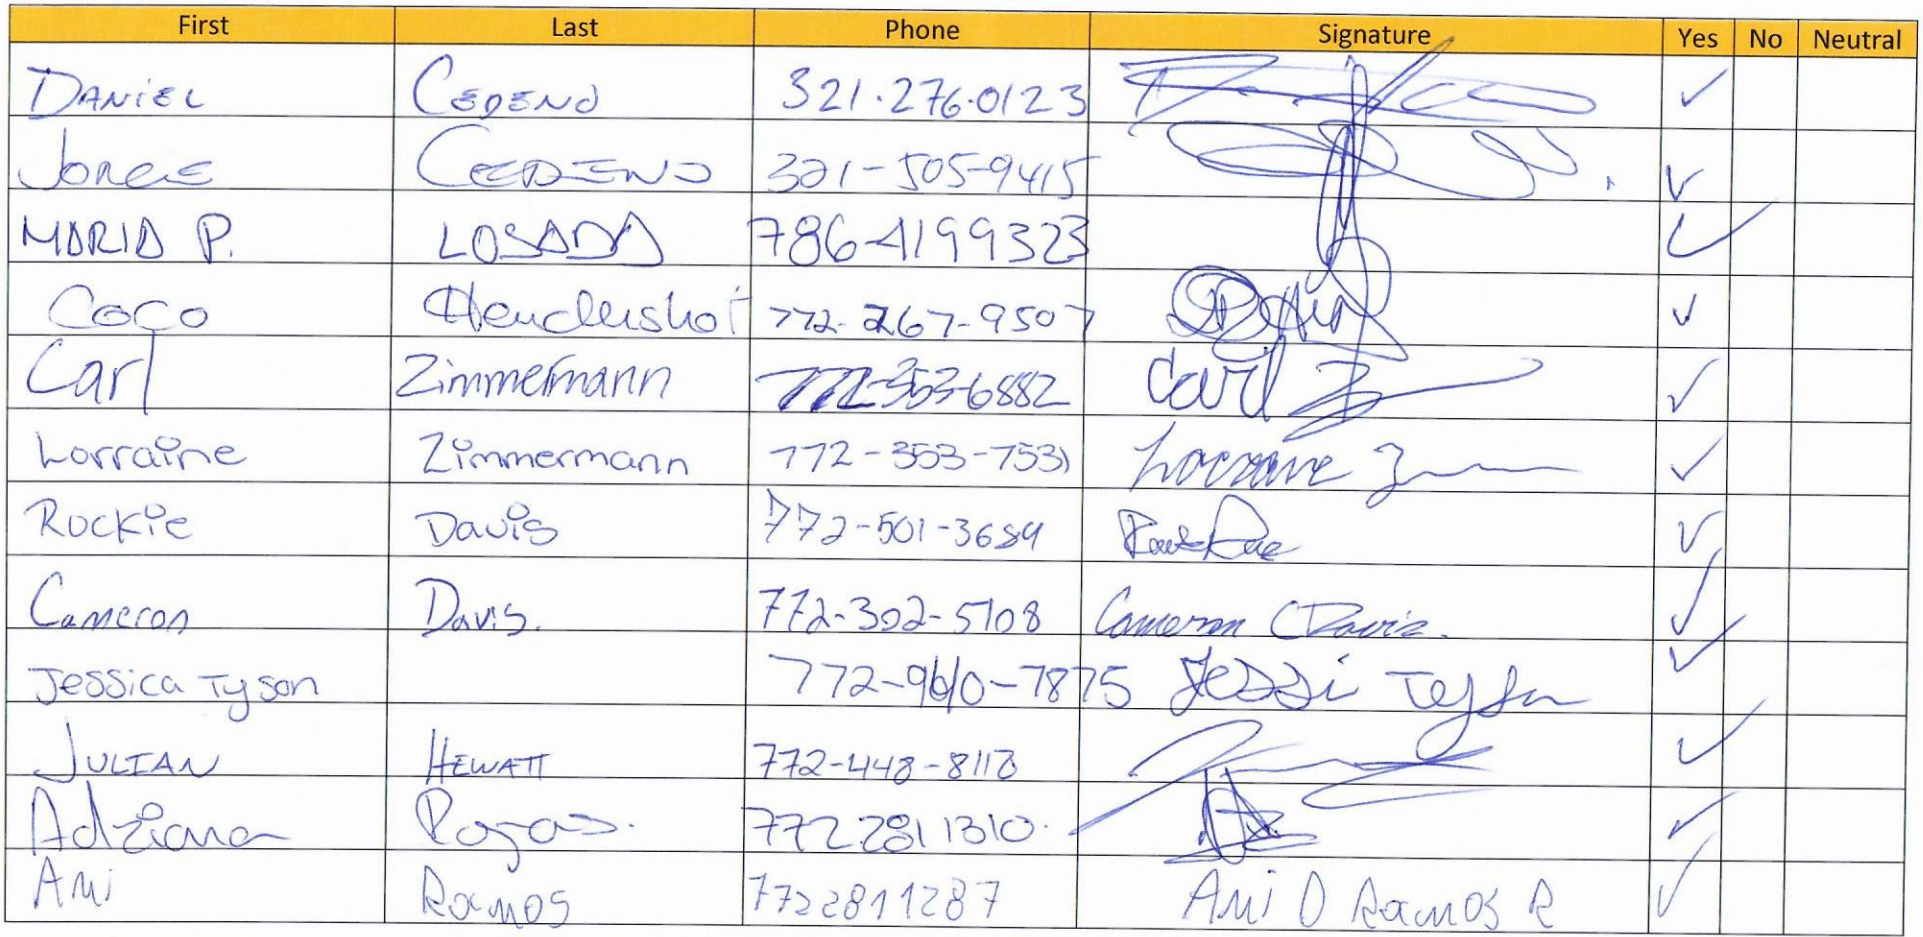 First Last Phone Signature Yes No Neutral
DANIEL CEDENO 321.276.0123
JORGE CEDENO 321-505-9415
MARIA P. LOSADA 786-4199323
Coco Hendershot 772-267-9507
Carl Zimmermann 772-353-6882 Carl Z
Lorraine Zimmermann 772-353-7531 Lorraine Z
Rockie Davis 772-501-3689
Cameron Davis. 772-302-5108 Cameron C Davis.
Jessica Tyson 772-960-7875 Jessi Tyson
JULIAN HEWATT 772-448-8118
Adriana 772 281 1310.
Ami Ramos 7722811287 Ami D Ramos R